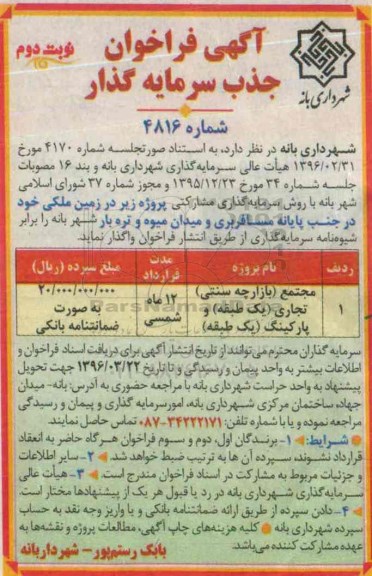 نوبت دوم
آگهی فراخوان
جذب سرمایه گذار
شهرداری بانه
شماره ۴۸۱۶
شهرداری بانه در نظر دارد، به استناد صورتجلسه شماره ۴۱۷۰ مورخ
۱۳۹۶/۰۲/۳۱ هیأت عالی سرمایه‌گذاری شهرداری بانه و بند ۱۶ مصوبات
جلسه شماره ۳۴ مورخ ۱۳۹۵/۱۲/۲۳ و مجوز شماره ۳۷ شورای اسلامی
شهر بانه با روش سرمایه‌گذاری مشارکتی پروژه زیر در زمین ملکی خود
در جنب پایانه مسافربری و میدان میوه و تره بار شهر بانه را برابر
شیوه‌نامه سرمایه‌گذاری از طریق انتشار فراخوان واگذار نماید.
ردیف نام پروژه مدت قرارداد مبلغ سپرده (ریال)
۱ مجتمع (بازارچه سنتی) تجاری (یک طبقه) و پارکینگ (یک طبقه) ۱۲ ماه شمسی ۲۰/۰۰۰/۰۰۰/۰۰۰ به صورت ضمانتنامه بانکی
سرمایه گذاران محترم می‌توانند از تاریخ انتشار آگهی برای دریافت اسناد فراخوان و
اطلاعات بیشتر به واحد پیمان و رسیدگی و تا تاریخ ۱۳۹۶/۰۳/۲۲ جهت تحویل
پیشنهاد به واحد حراست شهرداری بانه با مراجعه حضوری به آدرس: بانه- میدان
جهاد، ساختمان مرکزی شهرداری بانه، امور سرمایه گذاری و پیمان و رسیدگی
مراجعه نموده و یا با شماره تلفن: ۳۴۲۲۲۱۷۱-۰۸۷ تماس حاصل نمایند.
شرایط: ۱- برندگان اول، دوم و سوم فراخوان هرگاه حاضر به انعقاد
قرارداد نشوند، سپرده آن ها به ترتیب ضبط خواهد شد. ۲- سایر اطلاعات
و جزئیات مربوط به مشارکت در اسناد فراخوان مندرج است. ۳- هیأت عالی
سرمایه‌گذاری شهرداری بانه در رد یا قبول هر یک از پیشنهادها مختار است.
۴- دادن سپرده از طریق ارائه ضمانتنامه بانکی و یا واریز وجه نقد به حساب
سپرده شهرداری بانه کلیه هزینه‌های چاپ آگهی، مطالعات پروژه و نقشه‌ها به
عهده مشارکت کننده می‌باشد.
بابک رستم‌پور - شهردار بانه